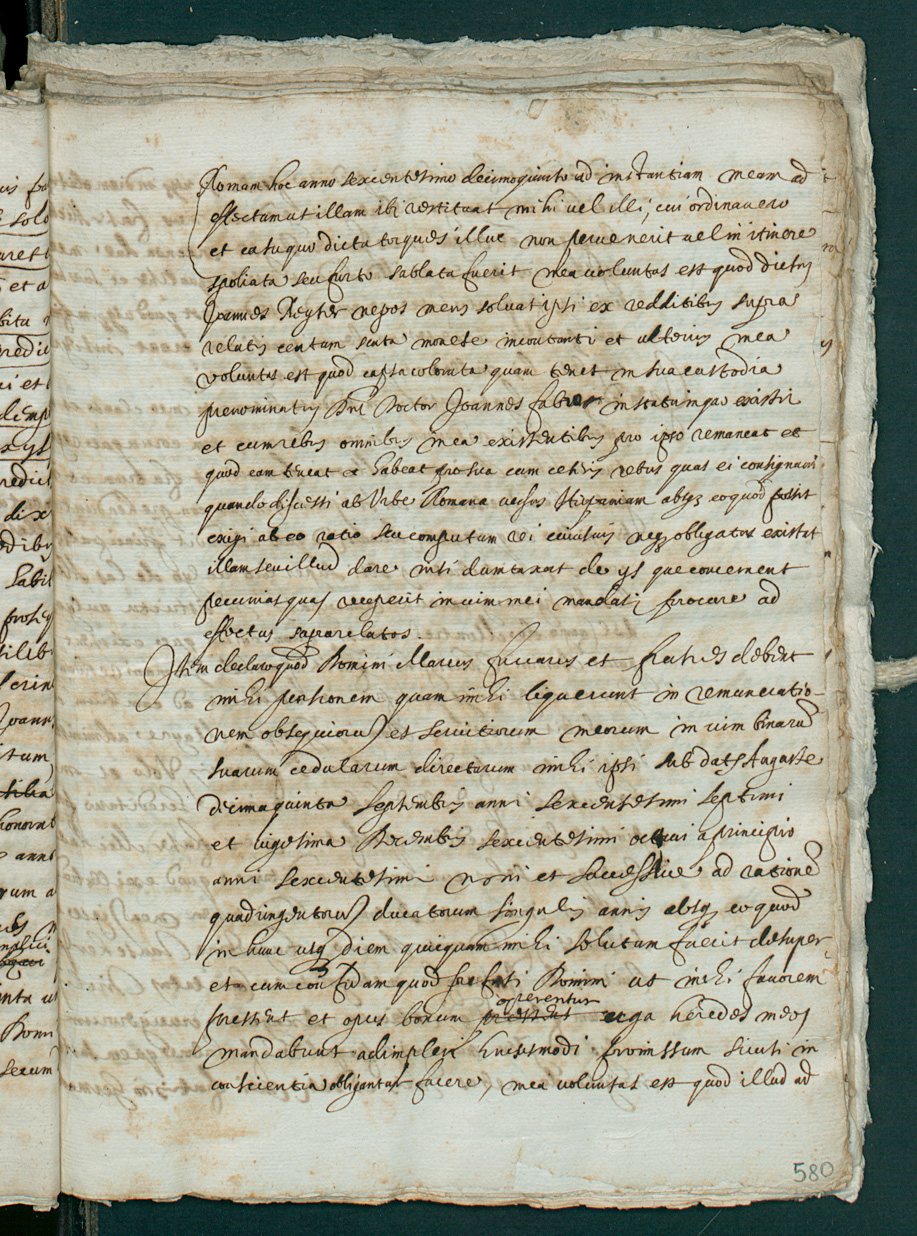 Romam hoc anno sexcentesimo decimoquinto ad instantiam meam ad
effectum ut illam ibi restituat mihi vel illi, cui ordinavero
et casu quo dicta torques illuc non pervenerit vel in itinere
spoliata seu furto sablata fuerit mea voluntas est quod dictus
Joannes nepos meus solvat ipsi ex redditibus supra
relatis centum scuta monete in contanti et ulterius mea
voluntas est quod capsa colorata quam tenet in sua custodia
prenominatus Dns Doctor Joannes faber in statu in quo existit
et cum rebus omnibus in ea existentibus pro ipso remaneat et
quod eam teneat et habeat pro sua cum ceteris rebus quas ei consignavi
quando discessi ab Urbe Romana versus Hispaniam absq eo quod possit
exigi ab eo ratio seu computum rei cuiusvis neq obligatus existat
illam seu illud dare nisi dumtaxat de ys que concernent
pecunias quas recepit in vim mei mandati procure ad
effectus suprarelatos.
Item declaro quod Domini Marcus fuccaris et fratres debent
mihi pensionem quam mihi liquerunt in remuneratio-
nem obsequiorum et servitiorum meorum in vim binarum
suarum cedularum directarum mihi ipsi sub datis Auguste
decimaquinta Septembris anni sexcentesimi septimi
et vigesima Decembris sexcentesimi octavi a principio
anni sexcentesimi noni et successive ad rationem
quadringentorum ducatorum singulis annis absq eo quod
in hunc usq diem quiquam mihi solutum fuerit desuper
et cum confidam quod prefati Domini ut mihi favorem
prestent et opus bonum operentur erga heredes meos
mandabunt adimpleri huiusmodi promissum sicuti in
conscientia obligantur facere, mea voluntas est quod illud ad
580